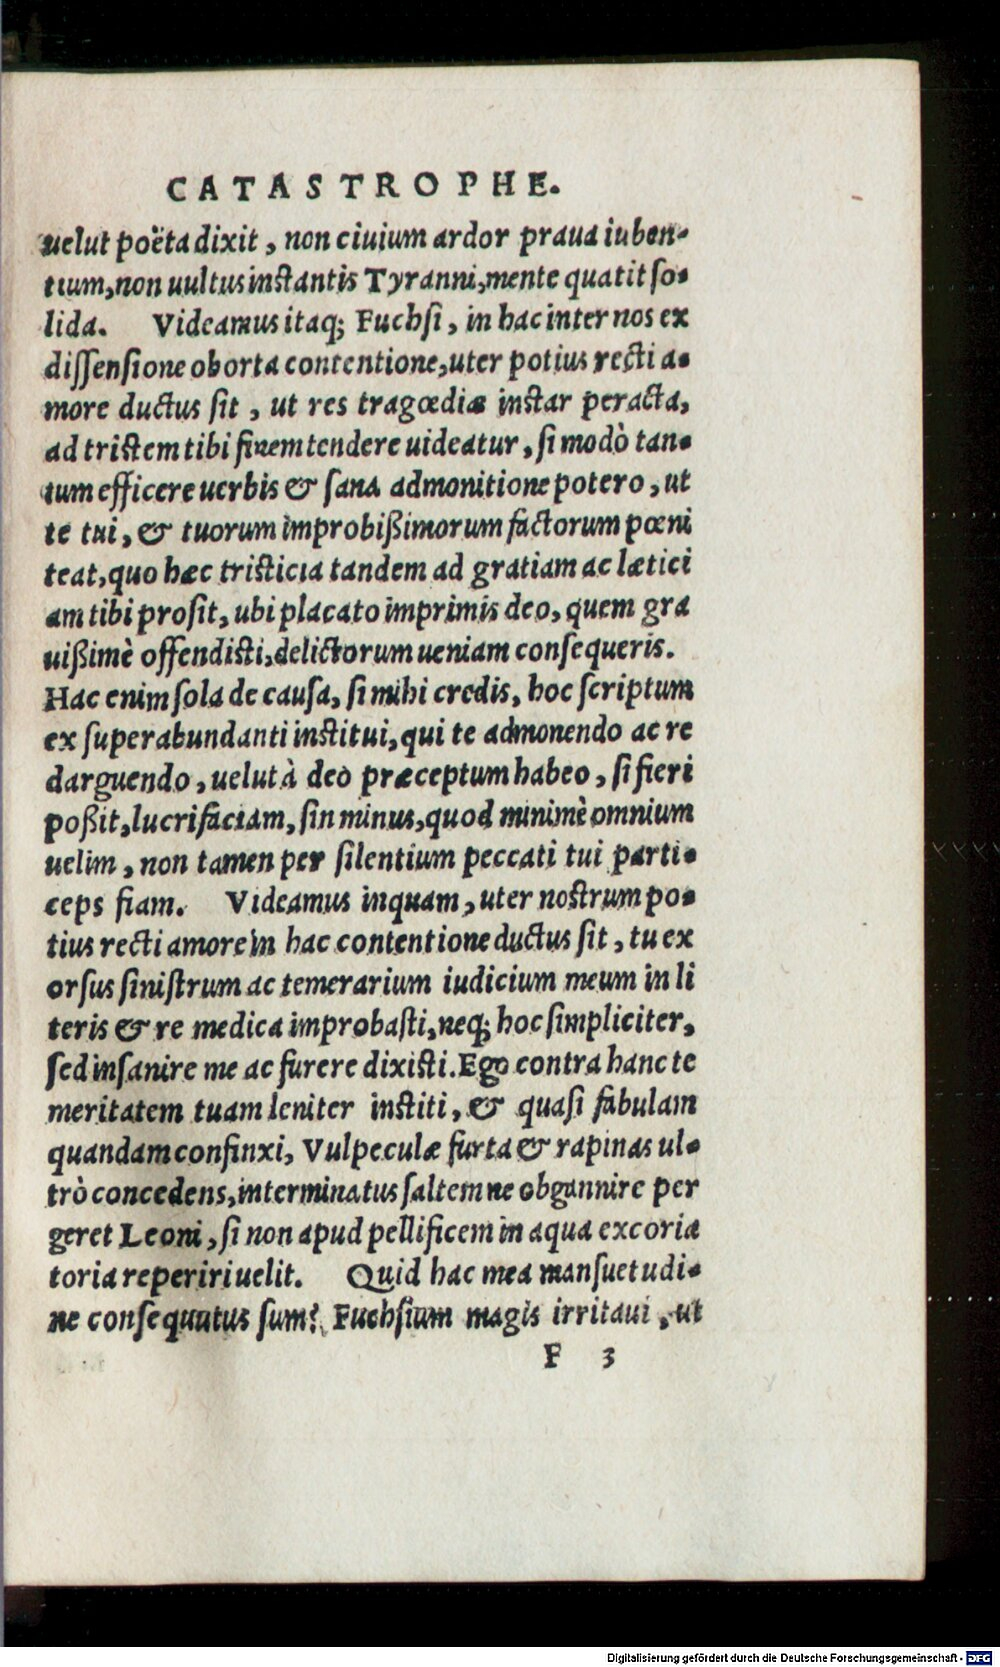 CATASTROPHE.
uelut poëta dixit, non ciuium ardor praua iuben-
tium, non uultus instantis Tyranni, mente quatit so-
lida. Videamus itaq; Fuchsi, in hac inter nos ex
dissensione oborta contentione, uter potius recti a-
more ductus sit, ut res tragœdiæ instar peracta,
ad tristem tibi finem tendere uideatur, si modò tan-
tum efficere uerbis & sana admonitione potero, ut
te tui, & tuorum improbißimorum factorum pœni
teat, quo hæc tristicia tandem ad gratiam ac lætici
am tibi prosit, ubi placato imprimis deo, quem gra
uißimè offendisti, delictorum ueniam consequeris.
Hac enim sola de causa, si mihi credis, hoc scriptum
ex superabundanti institui, qui te admonendo ac re
darguendo, uelut à deo præceptum habeo, si fieri
poßit, lucrifaciam, sin minus, quod minimè omnium
uelim, non tamen per silentium peccati tui parti-
ceps fiam. Videamus inquam, uter nostrum po-
tius recti amore in hac contentione ductus sit, tu ex
orsus sinistrum ac temerarium iudicium meum in li
teris & re medica improbasti, neq; hoc simpliciter,
sed insanire me ac furere dixisti. Ego contra hanc te
meritatem tuam leniter institi, & quasi fabulam
quandam confinxi, Vulpeculæ furta & rapinas ul-
trò concedens, interminatus saltem ne obgannire per
geret Leoni, si non apud pellificem in aqua excoria
toria reperiri uelit. Quid hac mea mansuetudi-
ne consequutus sum? Fuchsium magis irritaui, ut
F 3
Digitalisierung gefördert durch die Deutsche Forschungsgemeinschaft - DFG